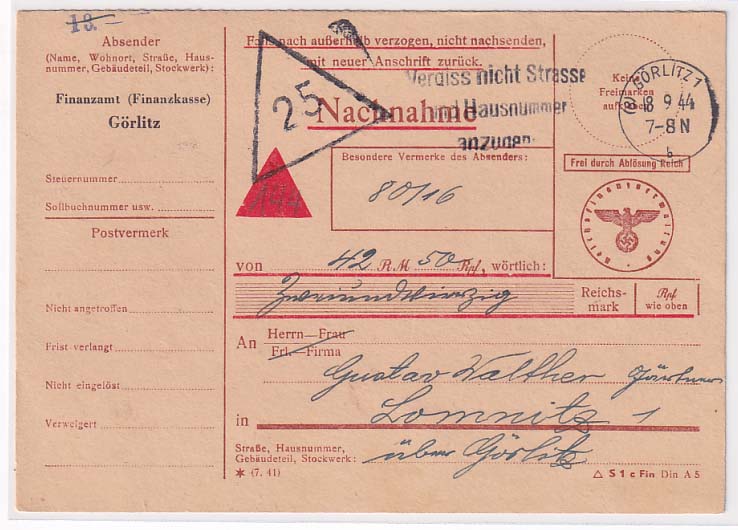 13.
Absender
(Name, Wohnort, Straße, Haus-
nummer, Gebäudeteil, Stockwerk):
Finanzamt (Finanzkasse)
Görlitz
Steuernummer
Sollbuchnummer usw.
Postvermerk
Nicht angetroffen
Frist verlangt
Nicht eingelöst
Verweigert
Falls nach außerhalb verzogen, nicht nachsenden,
mit neuer Anschrift zurück.
25
Nachnahme
Vergiss nicht Strasse
und Hausnummer
anzugeben
Keine
Freimarken
aufkleben
GÖRLITZ 1
18 9.44
7-8 N
b
Frei durch Ablösung Reich
Reichsfinanzverwaltung
Besondere Vermerke des Absenders:
80/16
von 42 RM 50 Rpf, wörtlich:
Zweiundvierzig
Reichs-
mark
Rpf
wie oben
An Herrn—Frau
Frl.—Firma
Gustav Walther Gärtner
in Lomnitz 1
Straße, Hausnummer,
Gebäudeteil, Stockwerk:
über Görlitz
* (7. 41)
△ S 1 c Fin Din A 5